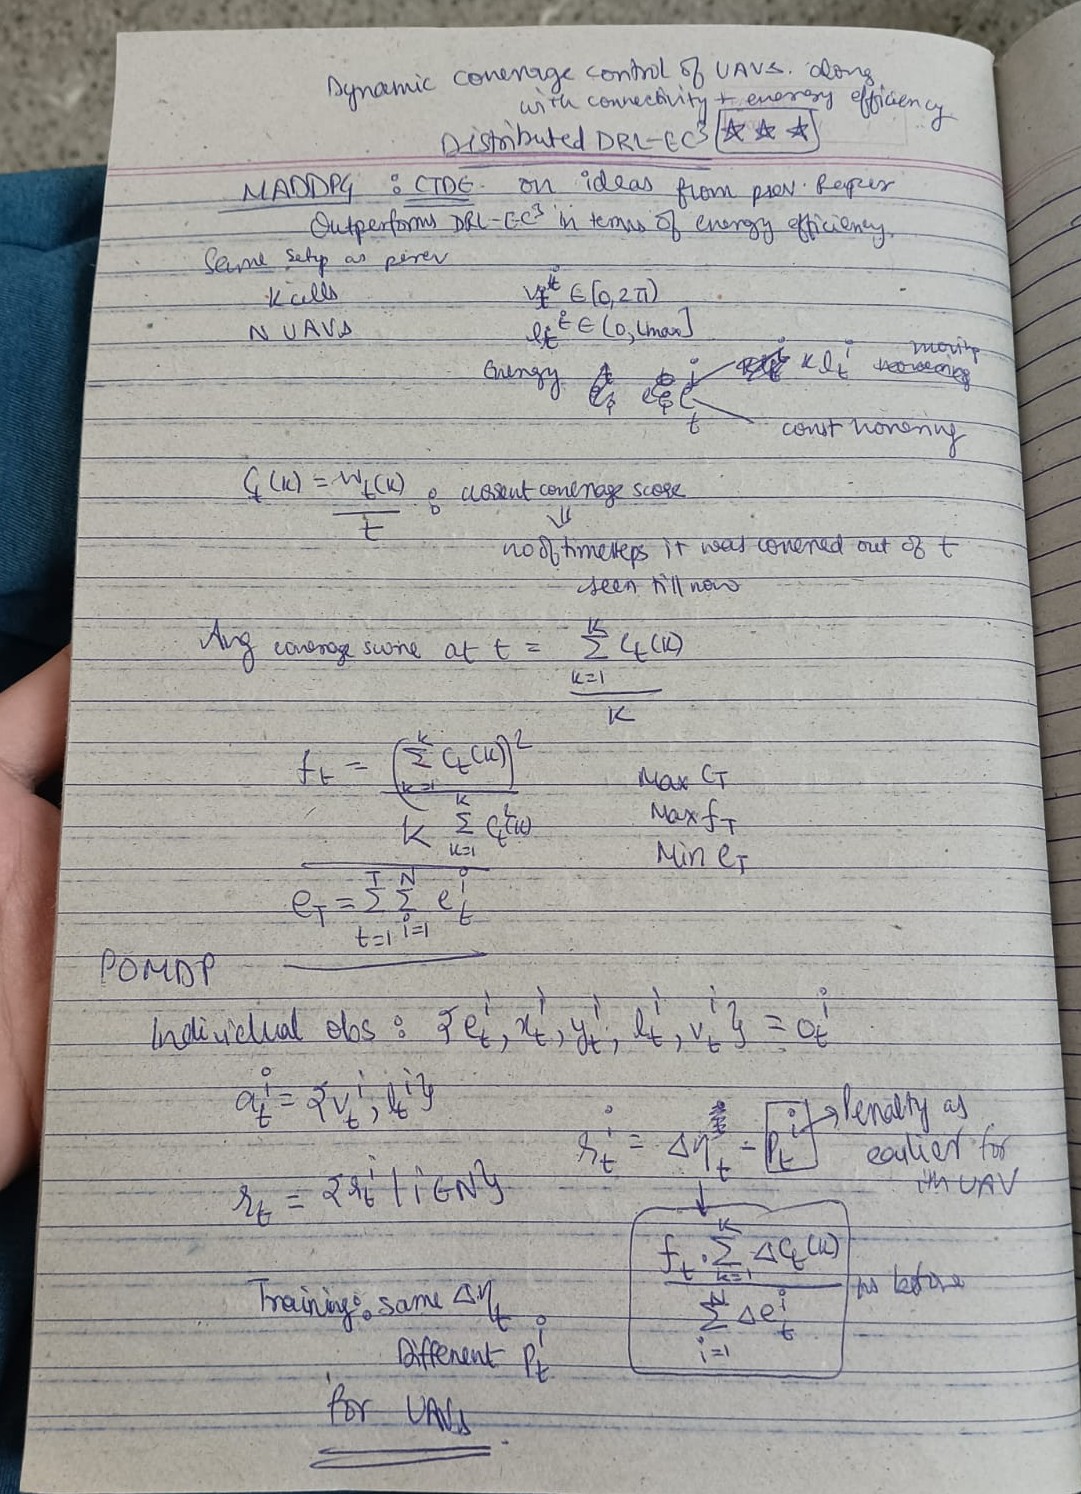 Dynamic coverage control of UAVs. along
with connectivity + energy efficiency
Distributed DRL-EC³ ☆ ☆ ☆
MADDPG : CTDE on ideas from prev. Paper
Outperforms DRL-EC³ in terms of energy efficiency.
Same setup as prev
K cells v_t^i ∈ [0, 2π)
N UAVs l_t^i ∈ (0, lmax]
Energy e_t^i K l_t^i moving
const hovering
C_t(k) = W_t(k) / t : coverage score
⇓
no of timesteps it was covered out of t
seen till now
Avg coverage score at t = Σ_{k=1}^{K} C_t(k) / K
f_t = (Σ_{k=1}^{K} C_t(k))² / K Σ_{k=1}^{K} C_t²(k)
Max C_T
Max f_T
Min e_T
e_T = Σ_{t=1}^{T} Σ_{i=1}^{N} e_t^i
POMDP
Individual obs : {e_t^i, x_t^i, y_t^i, l_t^i, v_t^i} = o_t^i
a_t^i = {v_t^i, l_t^i}
r_t^i = Δη_t - p_t^i → Penalty as
earlier for
ith UAV
r_t = {r_t^i | i ∈ N}
↓
f_t · Σ_{k=1}^{K} ΔC_t(k) / Σ_{i=1}^{N} Δe_t^i as before
Training: same Δη_t
Different p_t^i
for UAVs